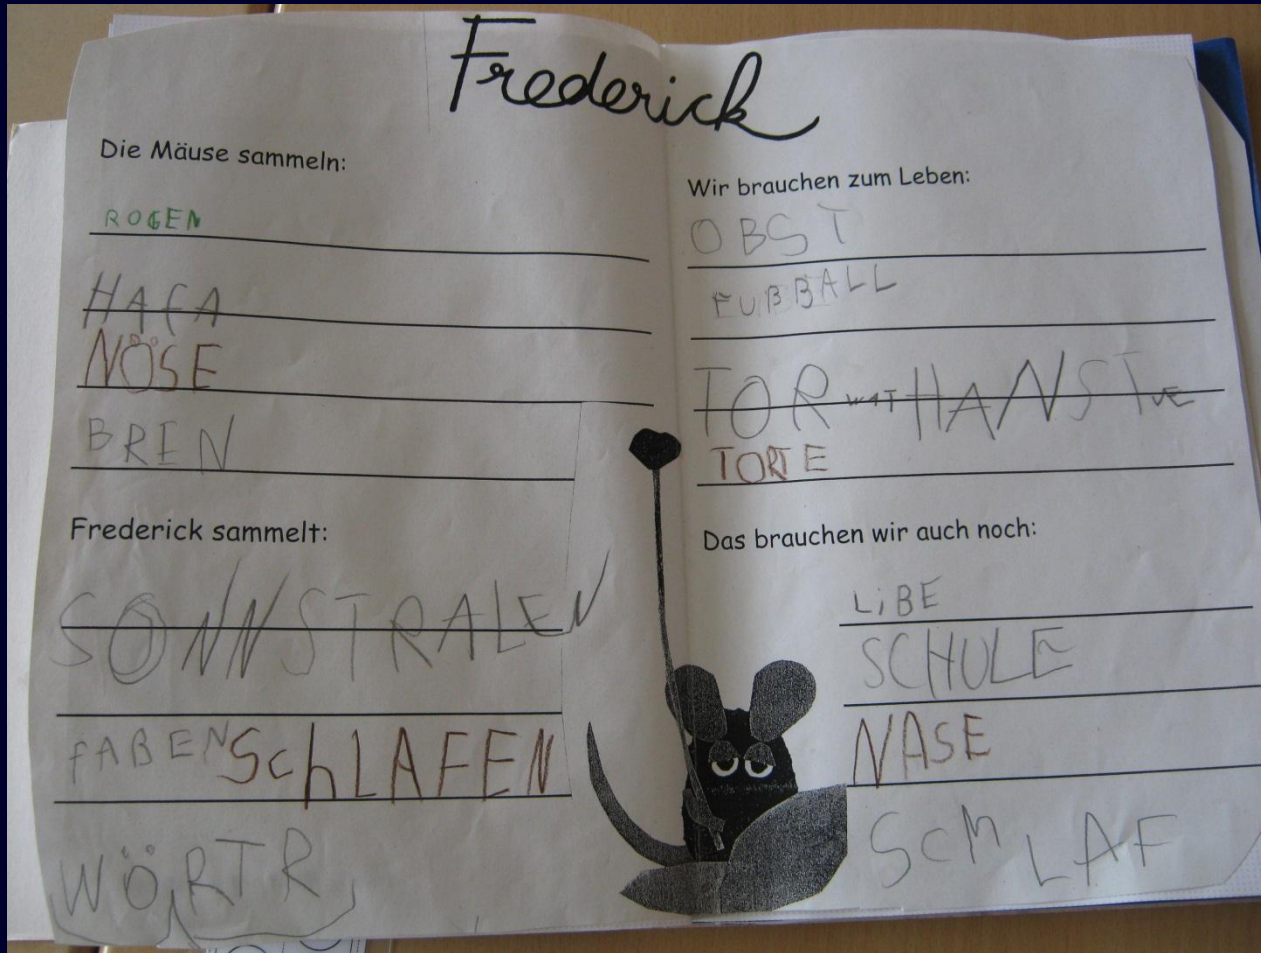 Frederick
Die Mäuse sammeln:
ROGEN
HAFA
NÖSE
BREN
Frederick sammelt:
SONNSTRALEN
fABENSchLAFEN
WÖRTR
Wir brauchen zum Leben:
OBST
FUßBALL
TOR WAT HANSTUE
TORTE
Das brauchen wir auch noch:
LiBE
SCHULE
NASE
SchLAF